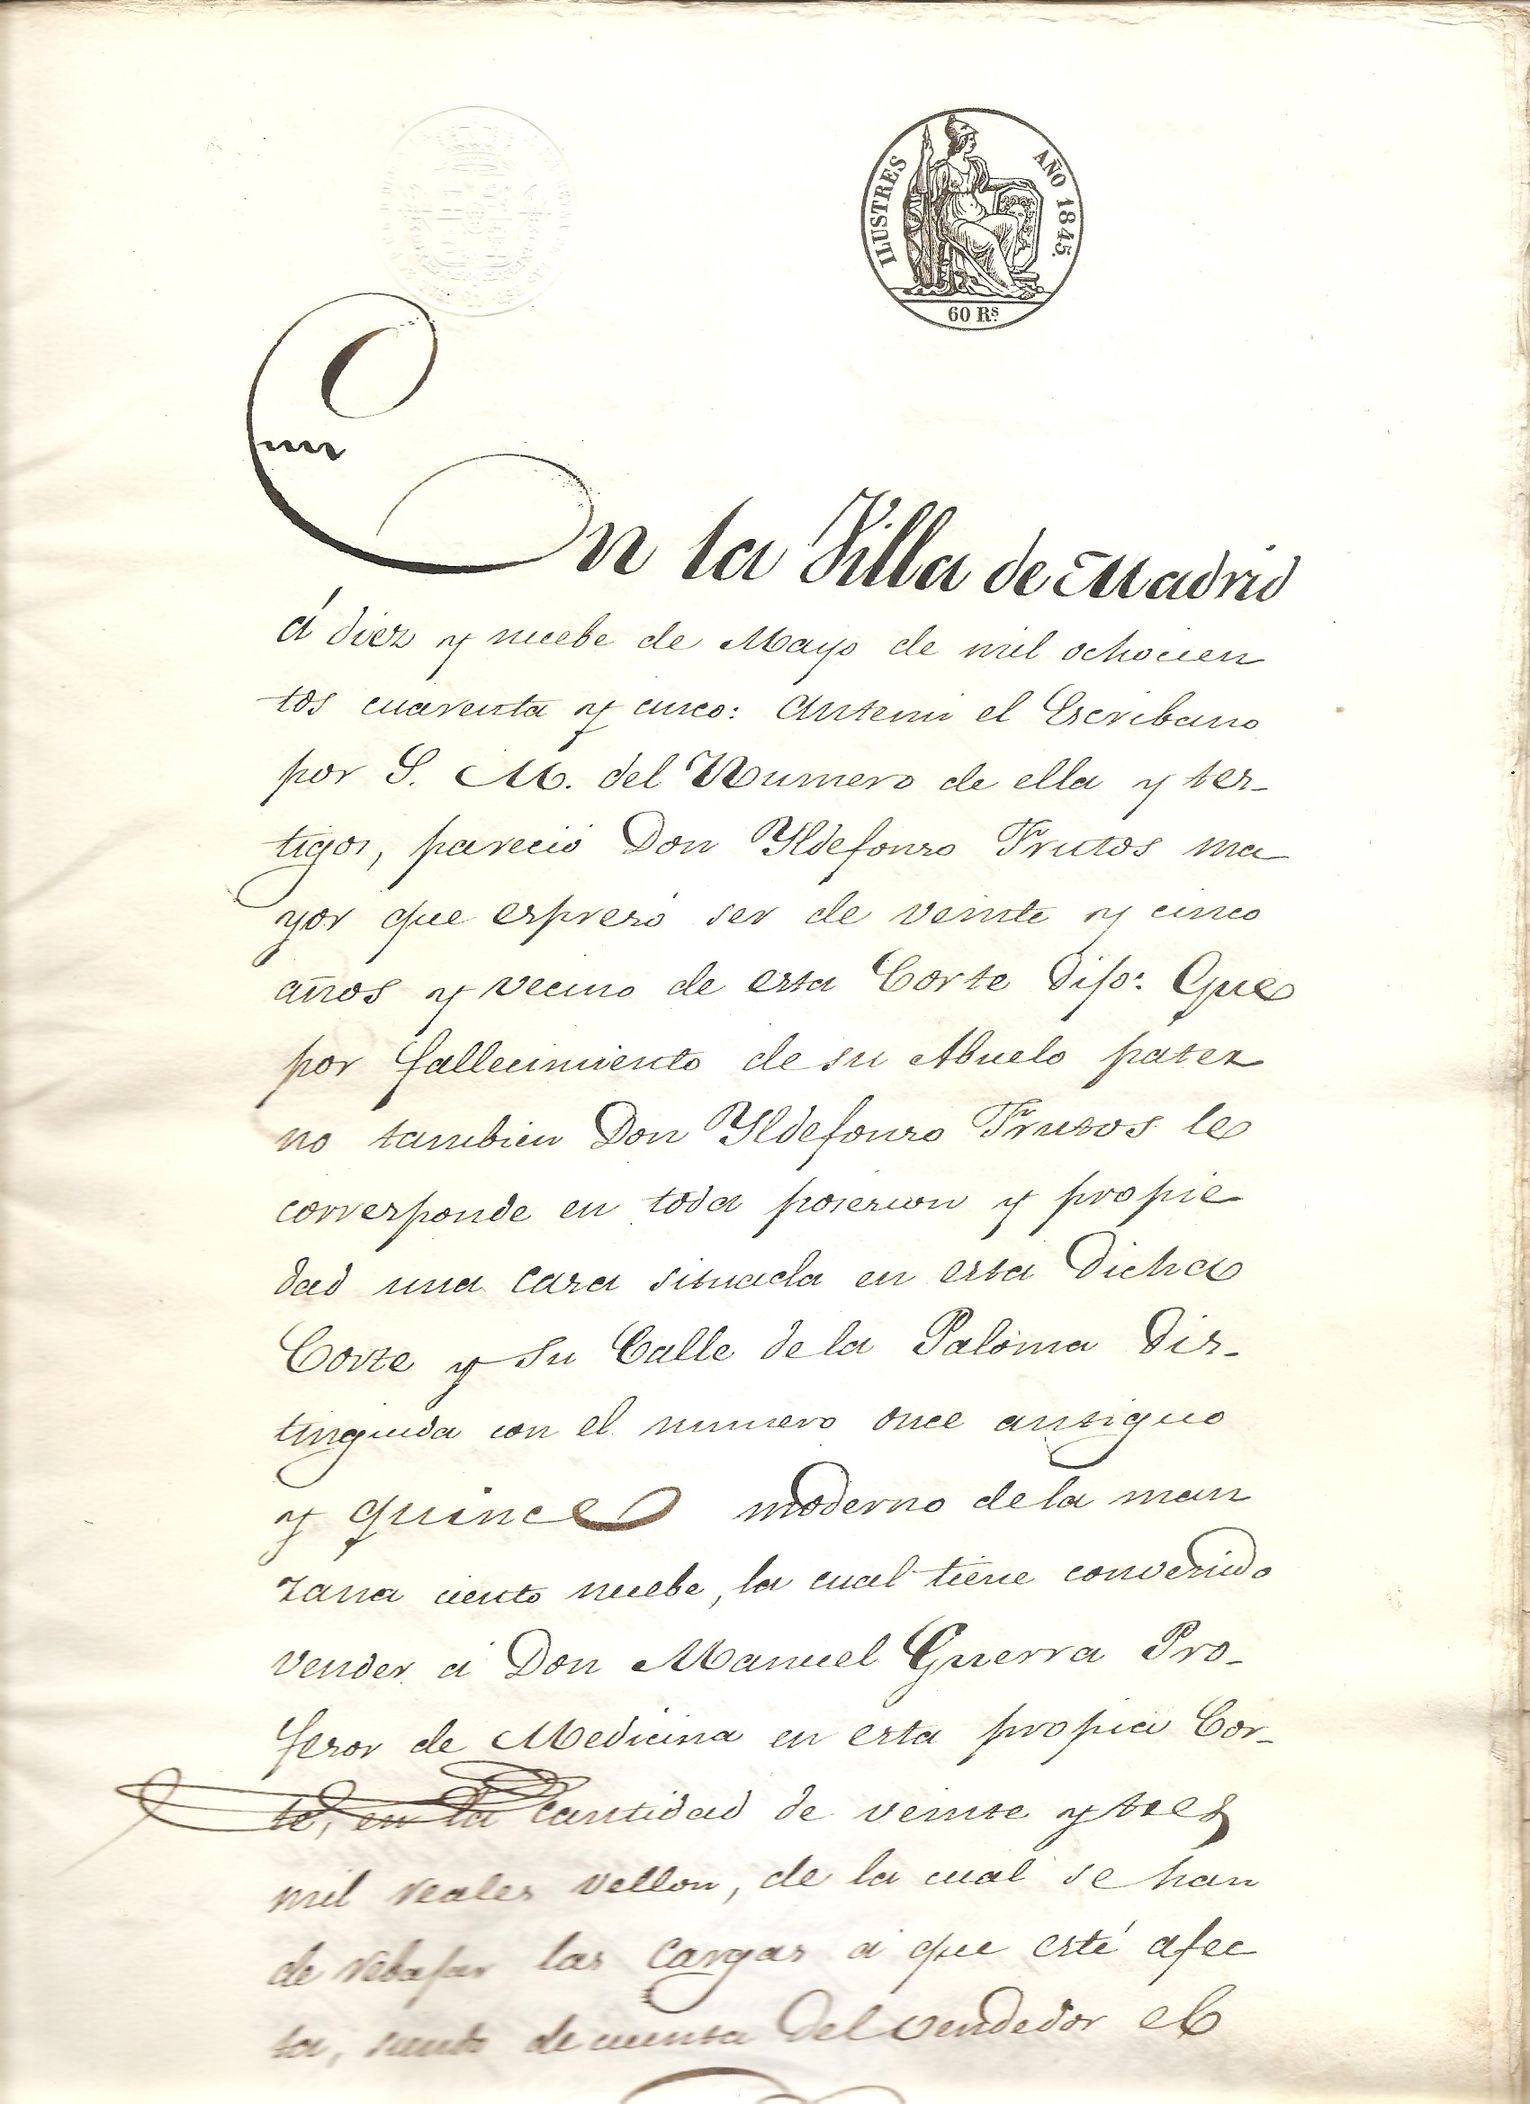 ILUSTRES AÑO 1845.
60 Rs.
En la Villa de Madrid
á diez y nuebe de Mayo de mil ochocien
tos cuarenta y cinco: Antemi el Escribano
por S. M. del Numero de ella y tes-
tigos, pareció Don Yldefonso Frutos ma
yor que espresó ser de veinte y cinco
años y vecino de esta Corte dijo: Que
por fallecimiento de su Abuelo pater
no tambien Don Yldefonso Frutos le
corresponde en toda posesion y propie
dad una casa situada en esta dicha
Corte y su Calle de la Paloma dis-
tinguida con el numero once antiguo
y quince moderno de la man
zana ciento nuebe, la cual tiene convenido
vender á Don Manuel Guerra Pro-
fesor de Medicina en esta propia Cor-
te, en la cantidad de veinte y tres
mil reales vellon, de la cual se han
de rebajar las cargas á que esté afec
ta, siendo de cuenta del vendedor el